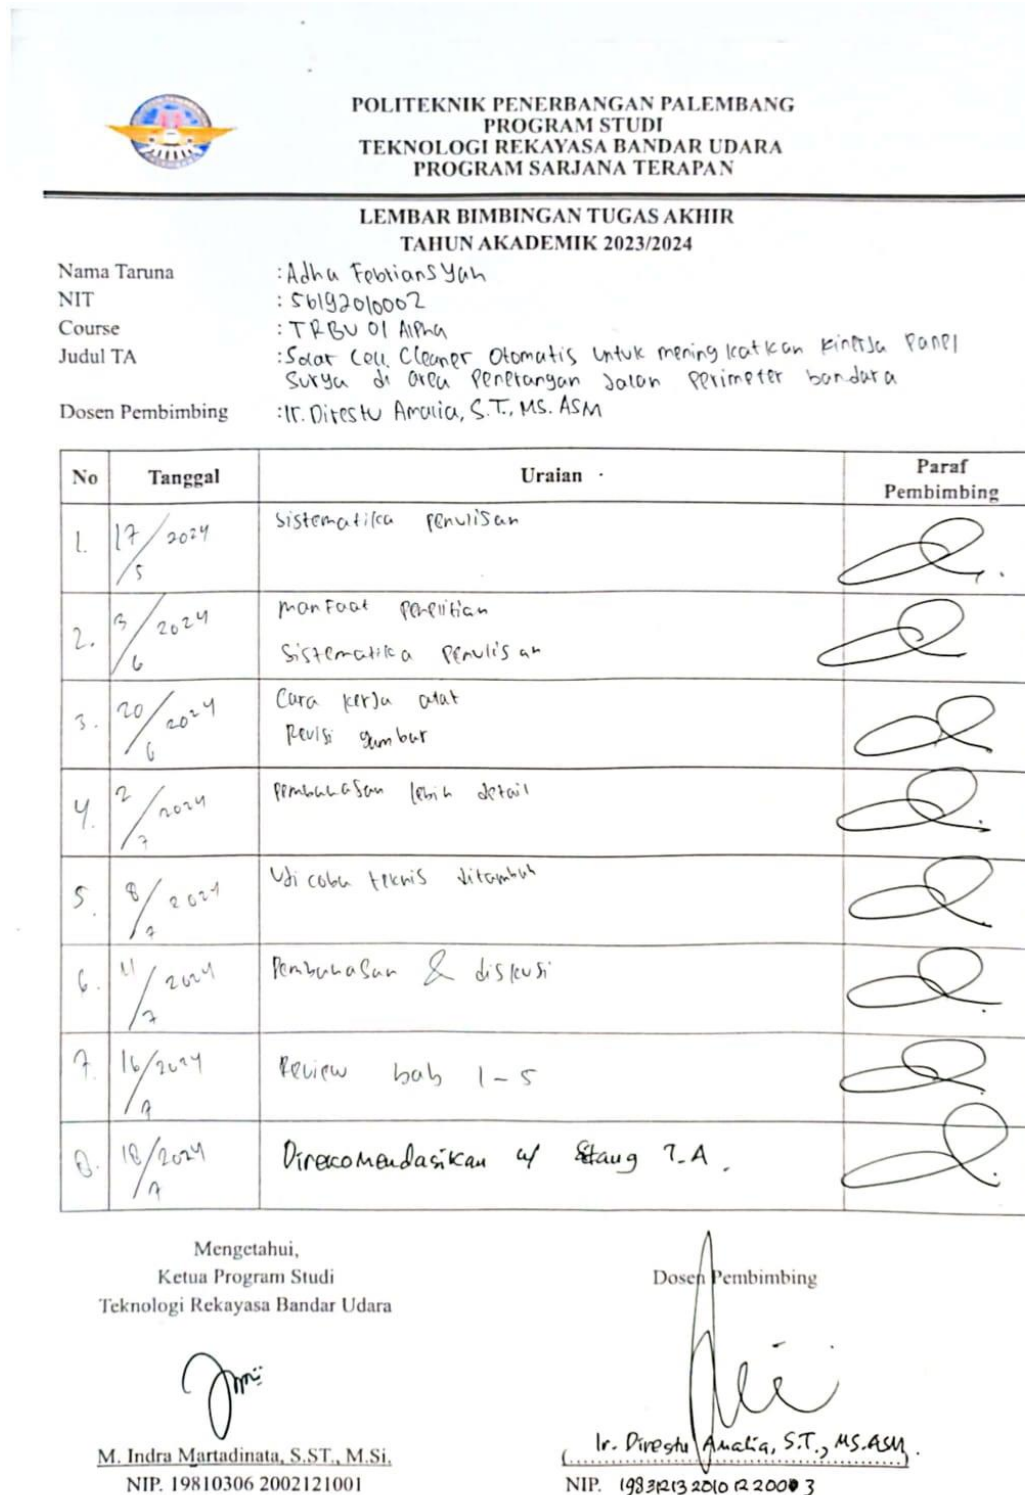 POLITEKNIK PENERBANGAN PALEMBANG
PROGRAM STUDI
TEKNOLOGI REKAYASA BANDAR UDARA
PROGRAM SARJANA TERAPAN
LEMBAR BIMBINGAN TUGAS AKHIR
TAHUN AKADEMIK 2023/2024
Nama Taruna : Adha Febriansyah
NIT : 56192010002
Course : TRBU 01 Alpha
Judul TA : Solar Cell Cleaner Otomatis untuk meningkatkan kinerja Panel
Surya di area Penerangan Jalan Perimeter bandara
Dosen Pembimbing : Ir. Direstu Amalia, S.T., MS. ASM
No Tanggal Uraian Paraf
Pembimbing
1. 17/5 2024 Sistematika penulisan
2. 3/6 2024 manfaat penelitian
Sistematika penulisan
3. 20/6 2024 Cara kerja alat
Revisi gambar
4. 2/7 2024 Pembahasan lebih detail
5. 8/7 2024 Uji coba teknis ditambah
6. 11/7 2024 Pembahasan & diskusi
7. 16/7 2024 Review bab 1-5
8. 18/7 2024 Direkomendasikan u/ T.A.
Mengetahui,
Ketua Program Studi
Teknologi Rekayasa Bandar Udara
Dosen Pembimbing
M. Indra Martadinata, S.ST., M.Si.
NIP. 19810306 2002121001
Ir. Direstu Amalia, S.T., MS.ASM.
NIP. 198312132010122003